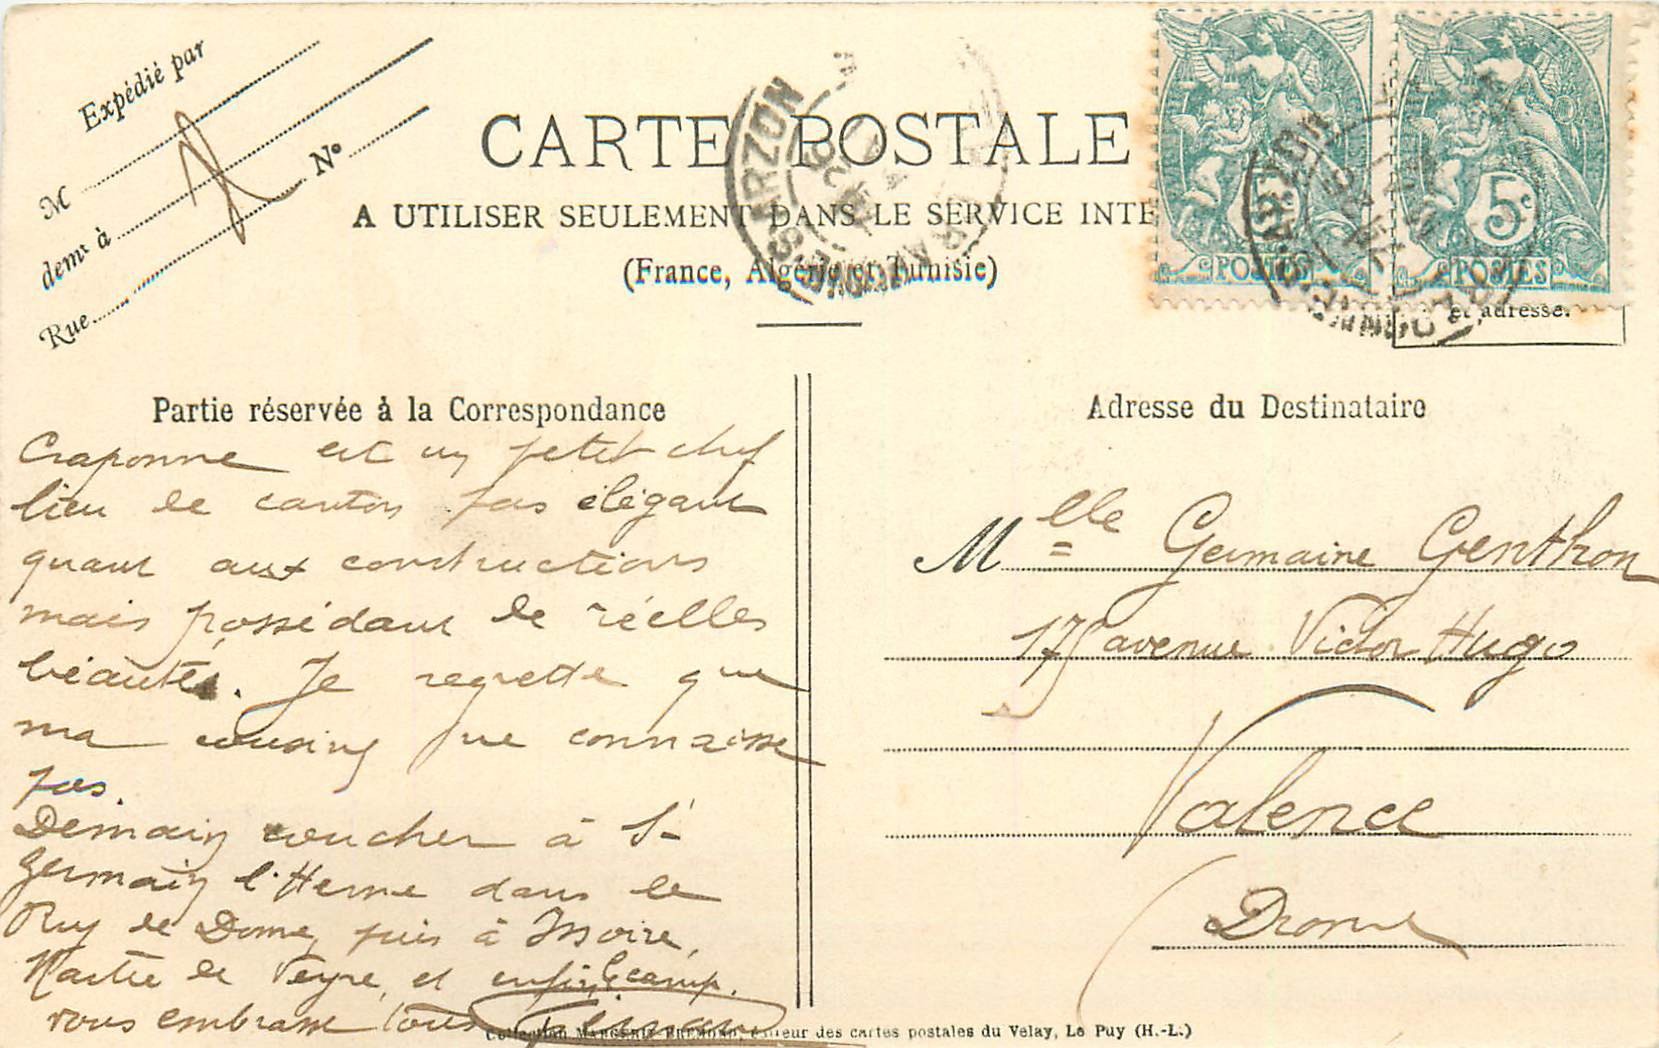 Expédié par
M
demt à
Rue
N°
CARTE POSTALE
A UTILISER SEULEMENT DANS LE SERVICE INTE
(France, Algérie et Tunisie)
CRAPONNE-S-ARZON
5c
POSTES
POSTES
et adresse.
Partie réservée à la Correspondance
Craponne est un petit chef
lieu de canton pas élégant
quant aux constructions
mais possédant de réelles
béautés. Je regrette que
ma cousine ne connaisse
pas.
Demain coucher à St
Germain l'Herme dans le
Puy de Dome, puis à Issoire,
Martre de Veyre, et enfin le camp.
vous embrasse tous
Adresse du Destinataire
Mlle Germaine Genthon
175 avenue Victor Hugo
Valence
Drome
Collection MARGERIT-BREMOND, éditeur des cartes postales du Velay, Le Puy (H.-L.)